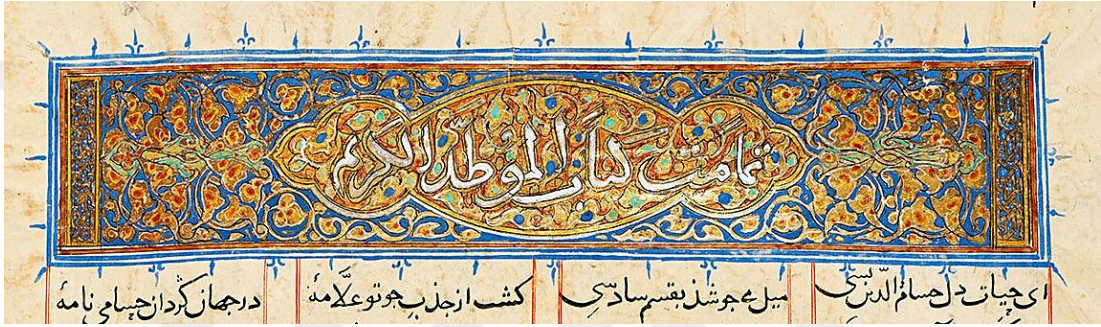 تمامت كتاب الموطد الكريم
ای حیات دل حسام الدین بسی میل می جوشذ بقسم سادسی کشت از جذب جو تو علامهٔ در جهان کردان حسامی نامهٔ